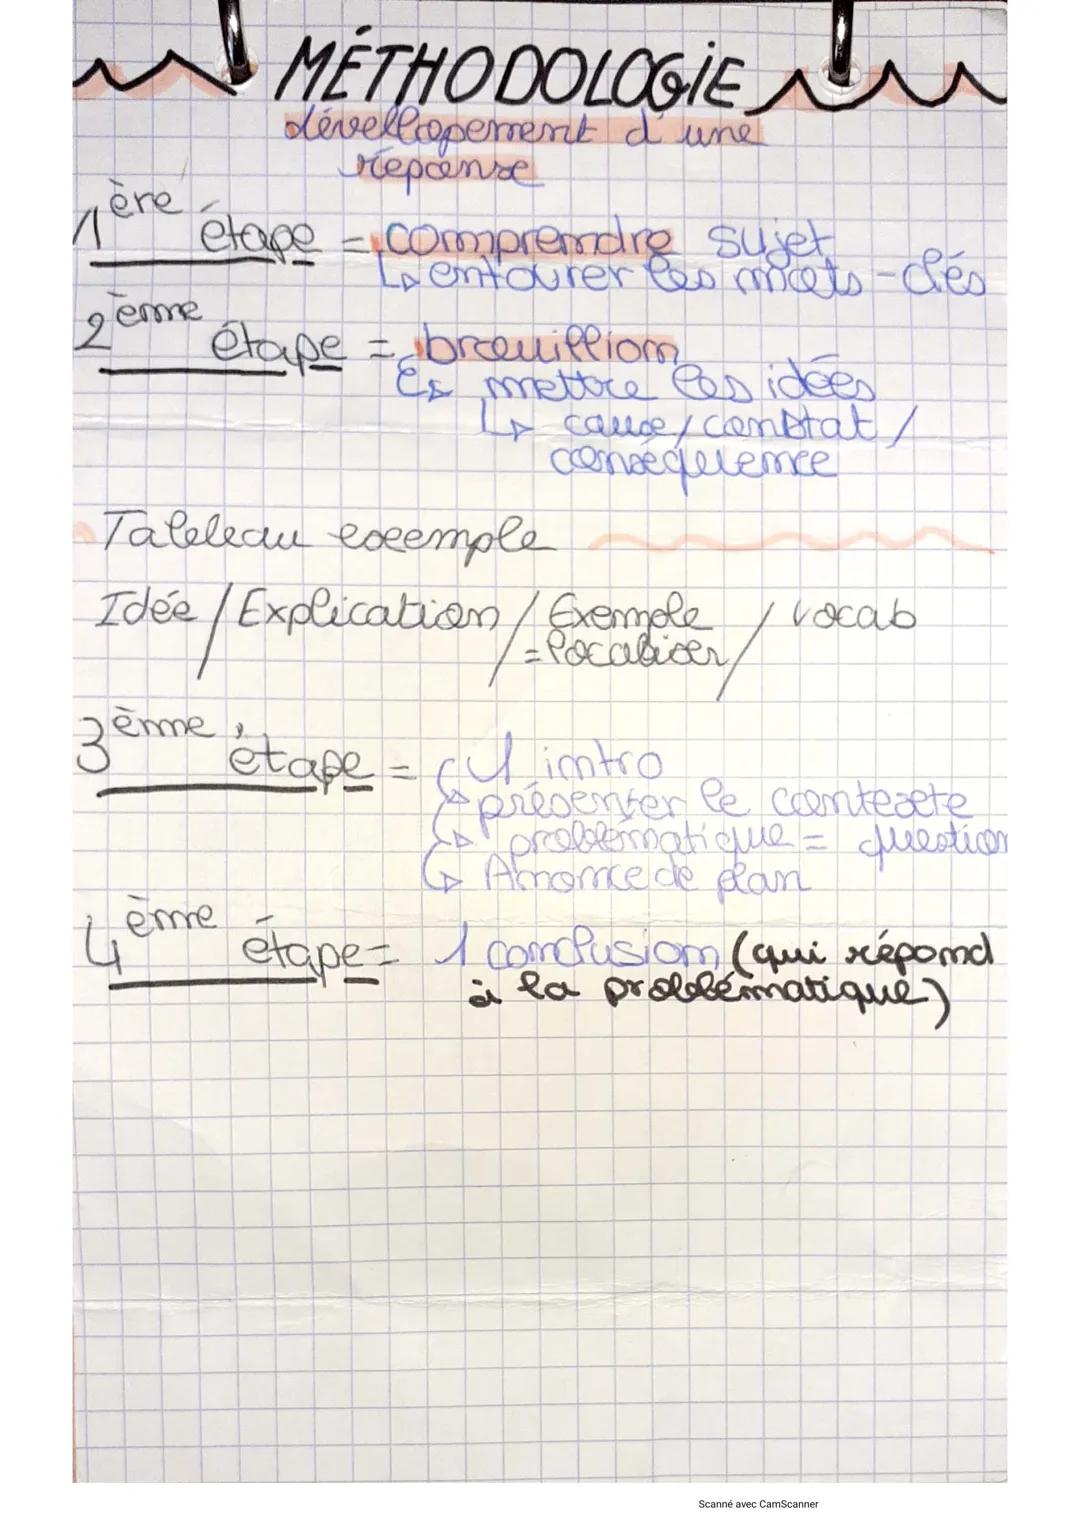 MÉTHODOLOGIE
dévellopement d'une
reponse
1ère étape = comprendre sujet
↳ entourer les mots-clés
2ème étape = brouillion
↳ mettre les idées
↳ cause/constat/
conséquence
Tableau exemple
Idée / Explication / Exemple / vocab
= localiser
3ème étape = 1 intro
↳ présenter le contexte
↳ problématique = question
↳ Annonce de plan
4ème étape = 1 conclusion (qui répond
à la problématique)
Scanné avec CamScanner